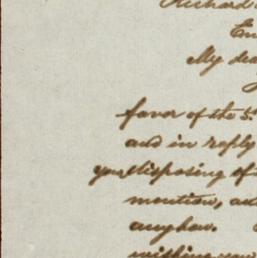 Richard
My dea
favor of the 5
and in reply
your disposing of
mention, an
anyhow.